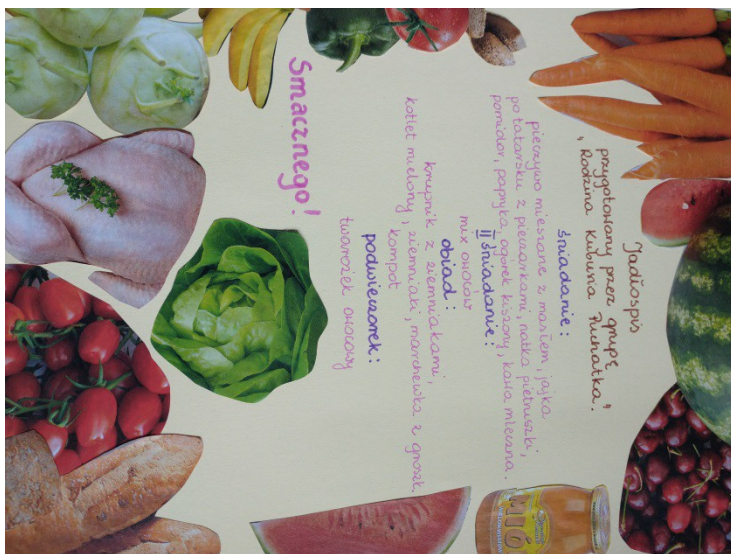 Jadłospis
przygotowany przez grupę
"Rodzina Kubusia Puchatka".
śniadanie:
pieczywo mieszane z masłem, jajka
po tatarsku z pieczarkami, natka pietruszki,
pomidor, papryka, ogórek kiszony, kawa mleczna.
II śniadanie:
mix owoców
obiad:
krupnik z ziemniakami,
kotlet mielony, ziemniaki, marchewka z groszk
kompot
podwieczorek:
twarożek owocowy
Smacznego!
MIÓD